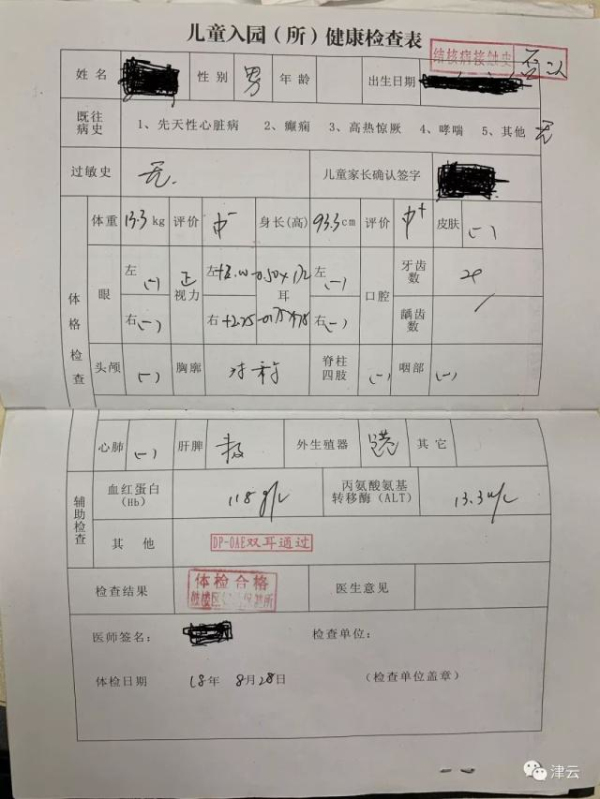 儿童入园（所）健康检查表
结核病接触史 否认
姓名 性别 男 年龄 出生日期
既往病史 1、先天性心脏病 2、癫痫 3、高热惊厥 4、哮喘 5、其他 无
过敏史 无. 儿童家长确认签字
体格检查
体重 13.3 kg 评价 中- 身长(高) 93.3 cm 评价 中+ 皮肤 (-)
眼 左 (-) 视力 正 左 耳 左 (-) 口腔 牙齿数 20
右 (-) 右 右 (-) 龋齿数 /
头颅 (-) 胸廓 对称 脊柱四肢 (-) 咽部 (-)
心肺 (-) 肝脾 外生殖器 其它
辅助检查
血红蛋白（Hb） 118 g/L 丙氨酸氨基转移酶（ALT） 13.3 u/L
其他 DP-OAE双耳通过
检查结果 体检合格 医生意见
医师签名： 检查单位：
体检日期 18年 8月28日 （检查单位盖章）
津云